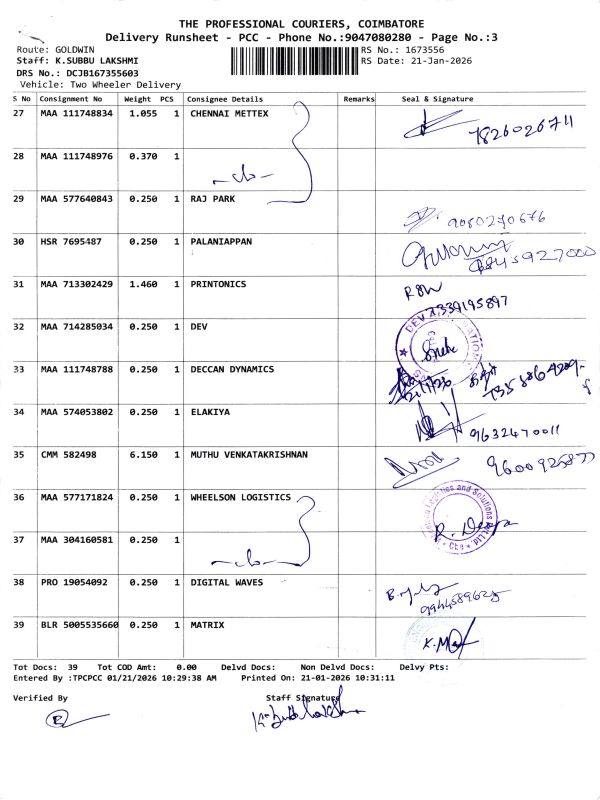 THE PROFESSIONAL COURIERS, COIMBATORE
Delivery Runsheet - PCC - Phone No.:9047080280 - Page No.:3
Route: GOLDWIN RS No.: 1673556
Staff: K.SUBBU LAKSHMI RS Date: 21-Jan-2026
DRS No.: DCJB167355603
Vehicle: Two Wheeler Delivery
S No Consignment No Weight PCS Consignee Details Remarks Seal & Signature
27 MAA 111748834 1.055 1 CHENNAI METTEX 7826026711
28 MAA 111748976 0.370 1
29 MAA 577640843 0.250 1 RAJ PARK 9080240676
30 HSR 7695487 0.250 1 PALANIAPPAN
31 MAA 713302429 1.460 1 PRINTONICS
32 MAA 714285034 0.250 1 DEV
33 MAA 111748788 0.250 1 DECCAN DYNAMICS
34 MAA 574053802 0.250 1 ELAKIYA 9632470011
35 CMM 582498 6.150 1 MUTHU VENKATAKRISHNAN
36 MAA 577171824 0.250 1 WHEELSON LOGISTICS
37 MAA 304160581 0.250 1
38 PRO 19054092 0.250 1 DIGITAL WAVES 9944589625
39 BLR 5005535660 0.250 1 MATRIX
Tot Docs: 39 Tot COD Amt: 0.00 Delvd Docs: Non Delvd Docs: Delvy Pts:
Entered By :TPCPCC 01/21/2026 10:29:38 AM Printed On: 21-01-2026 10:31:11
Verified By Staff Signature